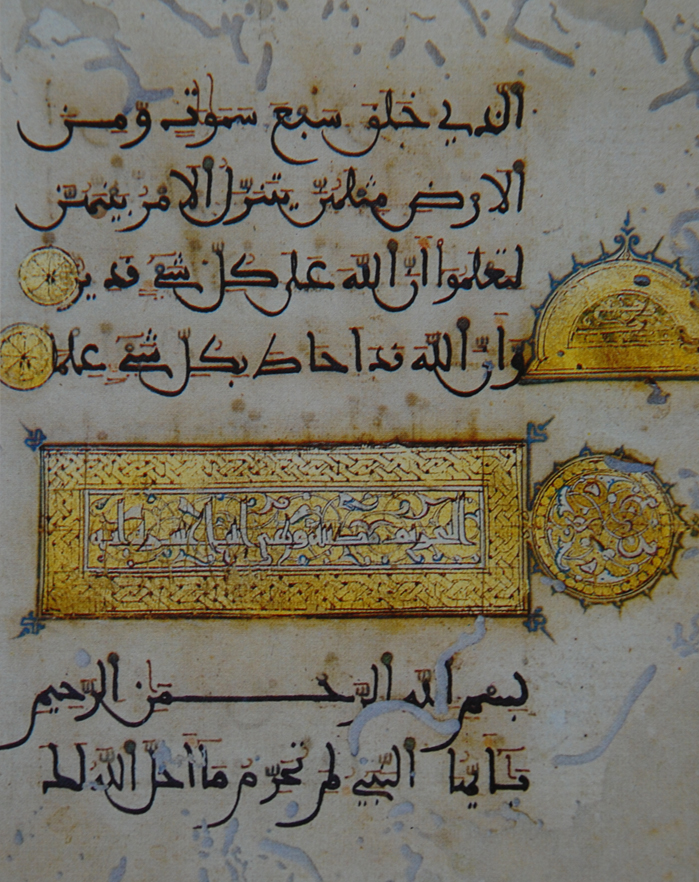 الذي خلق سبع سموت ومن
الارض مثلهن يتنزل الامر بينهن
لتعلموا أن الله على كل شيء قدير
وأن الله قد احاط بكل شيء علما
التحريم مدنية وهي عشرة اية
بسم الله الرحمن الرحيم
يايها النبي لم تحرم ما احل الله لك